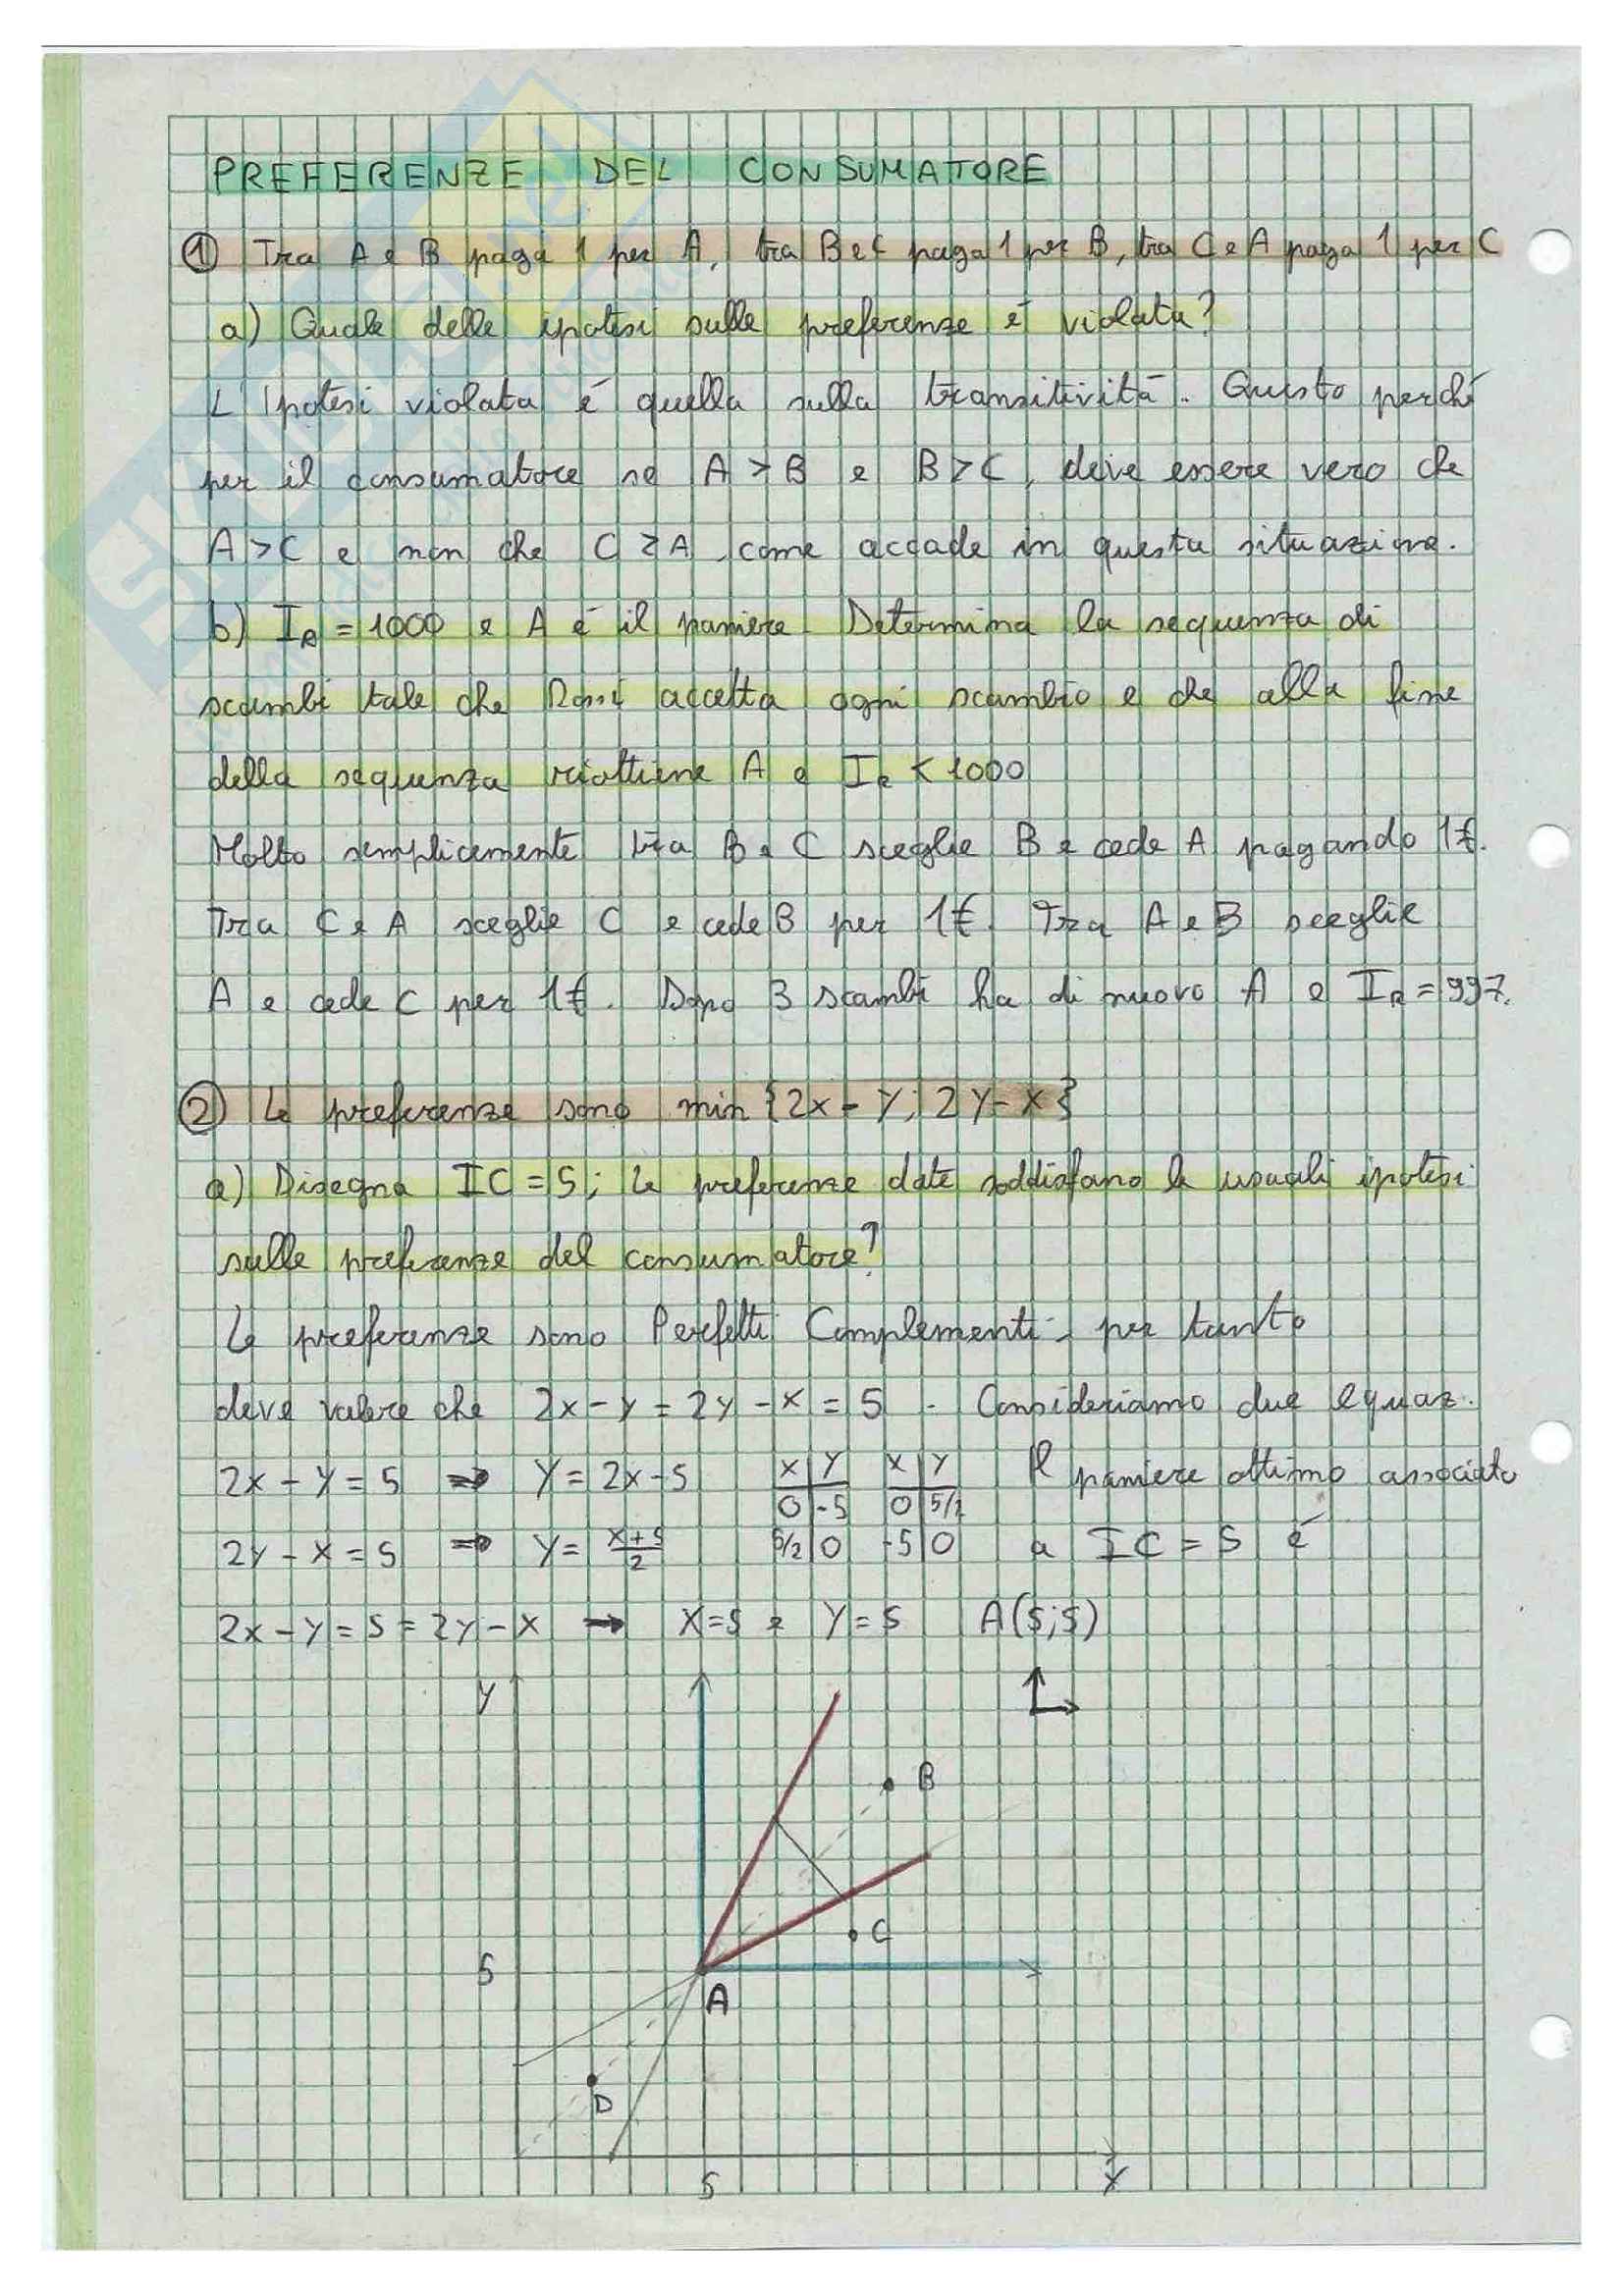 PREFERENZE DEL CONSUMATORE
① Tra A e B paga 1 per A, tra B e C paga 1 per B, tra C e A paga 1 per C
a) Quale delle ipotesi sulle preferenze é violata?
L'ipotesi violata é quella sulla transitivitá. Questo perché
per il consumatore se A > B e B > C, deve essere vero che
A > C e non che C ≥ A come accade in questa situazione.
b) IR = 1000 e A é il paniere. Determina la sequenza di
scambi tale che Rossi accetta ogni scambio e che alla fine
della sequenza riottiene A e IR < 1000
Molto semplicemente tra B e C sceglie B e cede A pagando 1€.
Tra C e A sceglie C e cede B per 1€. Tra A e B sceglie
A e cede C per 1€. Dopo 3 scambi ha di nuovo A e IR = 997.
② Le preferenze sono min {2x - y; 2y - x}
a) Disegna IC = 5; Le preferenze date soddisfano le usuali ipotesi
sulle preferenze del consumatore?
Le preferenze sono Perfetti Complementi - per tanto
deve valere che 2x - y = 2y - x = 5 . Consideriamo due equaz.
2x - y = 5 ⇒ y = 2x - 5 x y x y Il paniere ottimo associato
0 -5 0 5/2
2y - x = 5 ⇒ y = x+5/2 5/2 0 -5 0 a IC = 5 é
2x - y = 5 = 2y - x → x = 5 e y = 5 A(5;5)
y
B
C
5
A
D
5
x